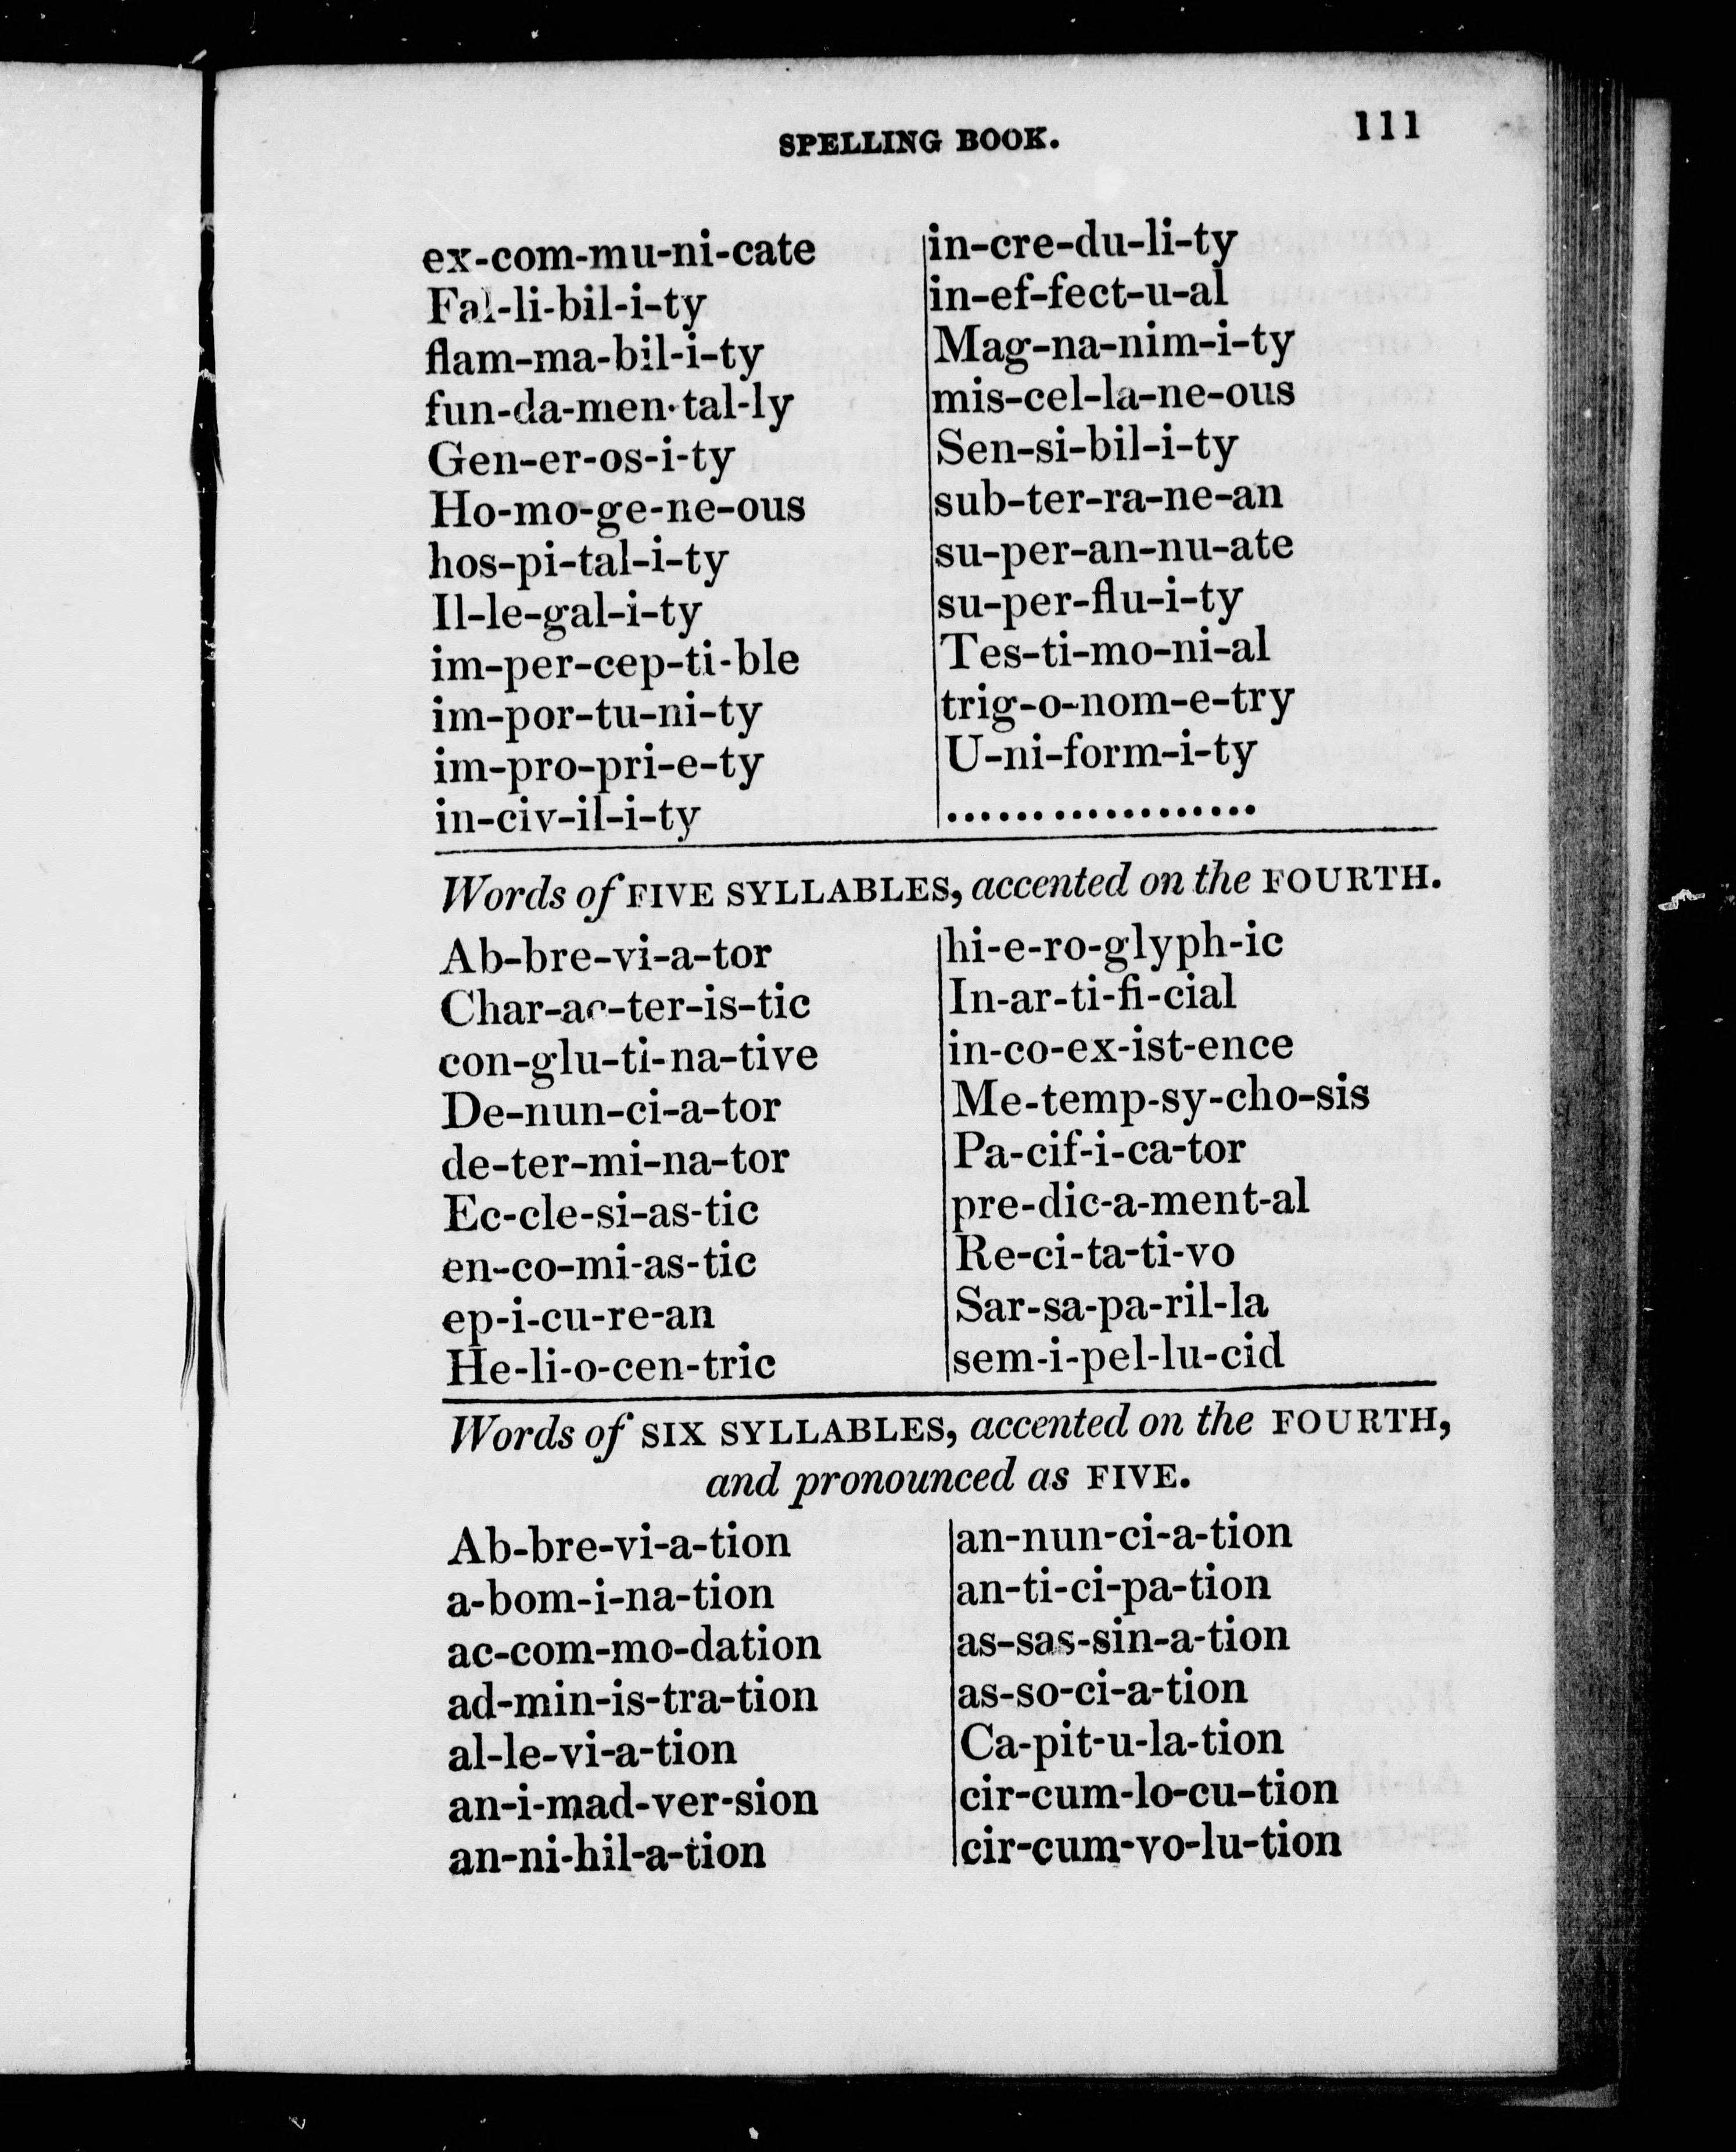 SPELLING BOOK.
111
ex-com-mu-ni-cate
Fal-li-bil-i-ty
flam-ma-bil-i-ty
fun-da-men-tal-ly
Gen-er-os-i-ty
Ho-mo-ge-ne-ous
hos-pi-tal-i-ty
Il-le-gal-i-ty
im-per-cep-ti-ble
im-por-tu-ni-ty
im-pro-pri-e-ty
in-civ-il-i-ty
in-cre-du-li-ty
in-ef-fect-u-al
Mag-na-nim-i-ty
mis-cel-la-ne-ous
Sen-si-bil-i-ty
sub-ter-ra-ne-an
su-per-an-nu-ate
su-per-flu-i-ty
Tes-ti-mo-ni-al
trig-o-nom-e-try
U-ni-form-i-ty
..................
Words of FIVE SYLLABLES, accented on the FOURTH.
Ab-bre-vi-a-tor
Char-ac-ter-is-tic
con-glu-ti-na-tive
De-nun-ci-a-tor
de-ter-mi-na-tor
Ec-cle-si-as-tic
en-co-mi-as-tic
ep-i-cu-re-an
He-li-o-cen-tric
hi-e-ro-glyph-ic
In-ar-ti-fi-cial
in-co-ex-ist-ence
Me-temp-sy-cho-sis
Pa-cif-i-ca-tor
pre-dic-a-ment-al
Re-ci-ta-ti-vo
Sar-sa-pa-ril-la
sem-i-pel-lu-cid
Words of SIX SYLLABLES, accented on the FOURTH,
and pronounced as FIVE.
Ab-bre-vi-a-tion
a-bom-i-na-tion
ac-com-mo-dation
ad-min-is-tra-tion
al-le-vi-a-tion
an-i-mad-ver-sion
an-ni-hil-a-tion
an-nun-ci-a-tion
an-ti-ci-pa-tion
as-sas-sin-a-tion
as-so-ci-a-tion
Ca-pit-u-la-tion
cir-cum-lo-cu-tion
cir-cum-vo-lu-tion